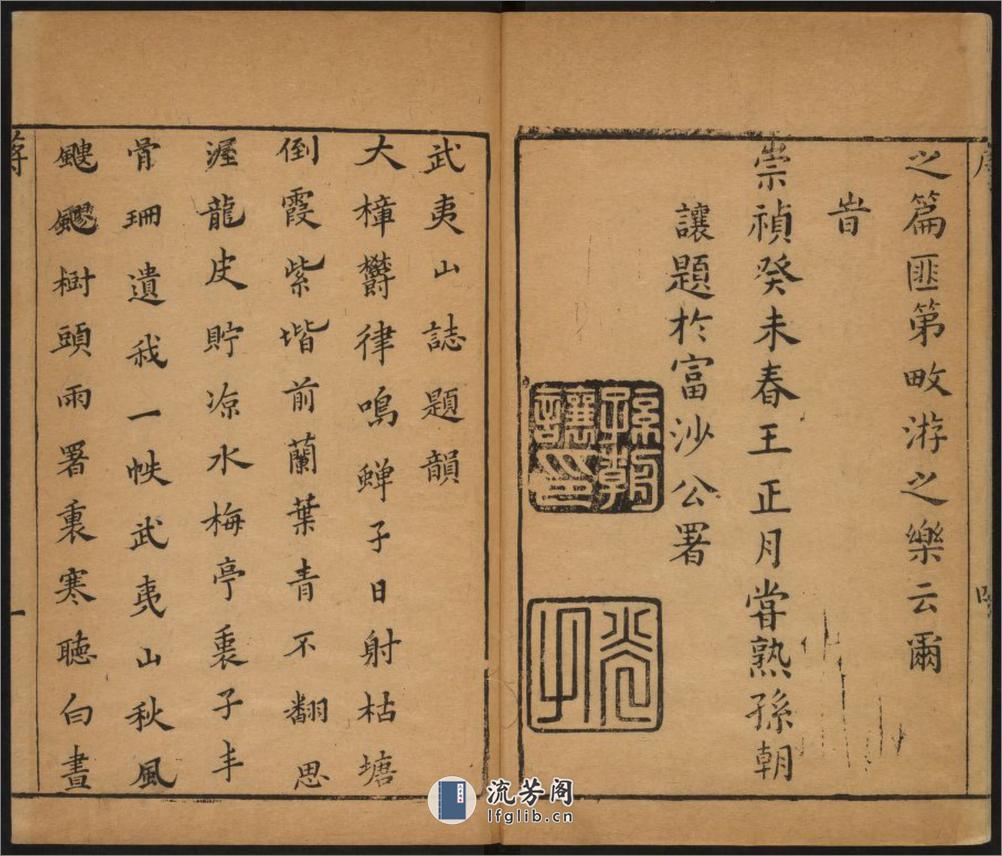 之篇匪第畋游之樂云爾
旹
崇禎癸未春王正月甞熟孫朝
讓題於富沙公署
孫朝
讓印
武夷山誌題韻
大樟欝律鳴蟬子日射枯塘
倒霞紫堦前蘭葉青不翻思
渥龍皮貯凉水梅亭裏子丰
骨珊遺我一帙武夷山秋風
颼飀樹頭雨署裏寒聴白晝
一
流芳阁
lfglib.cn